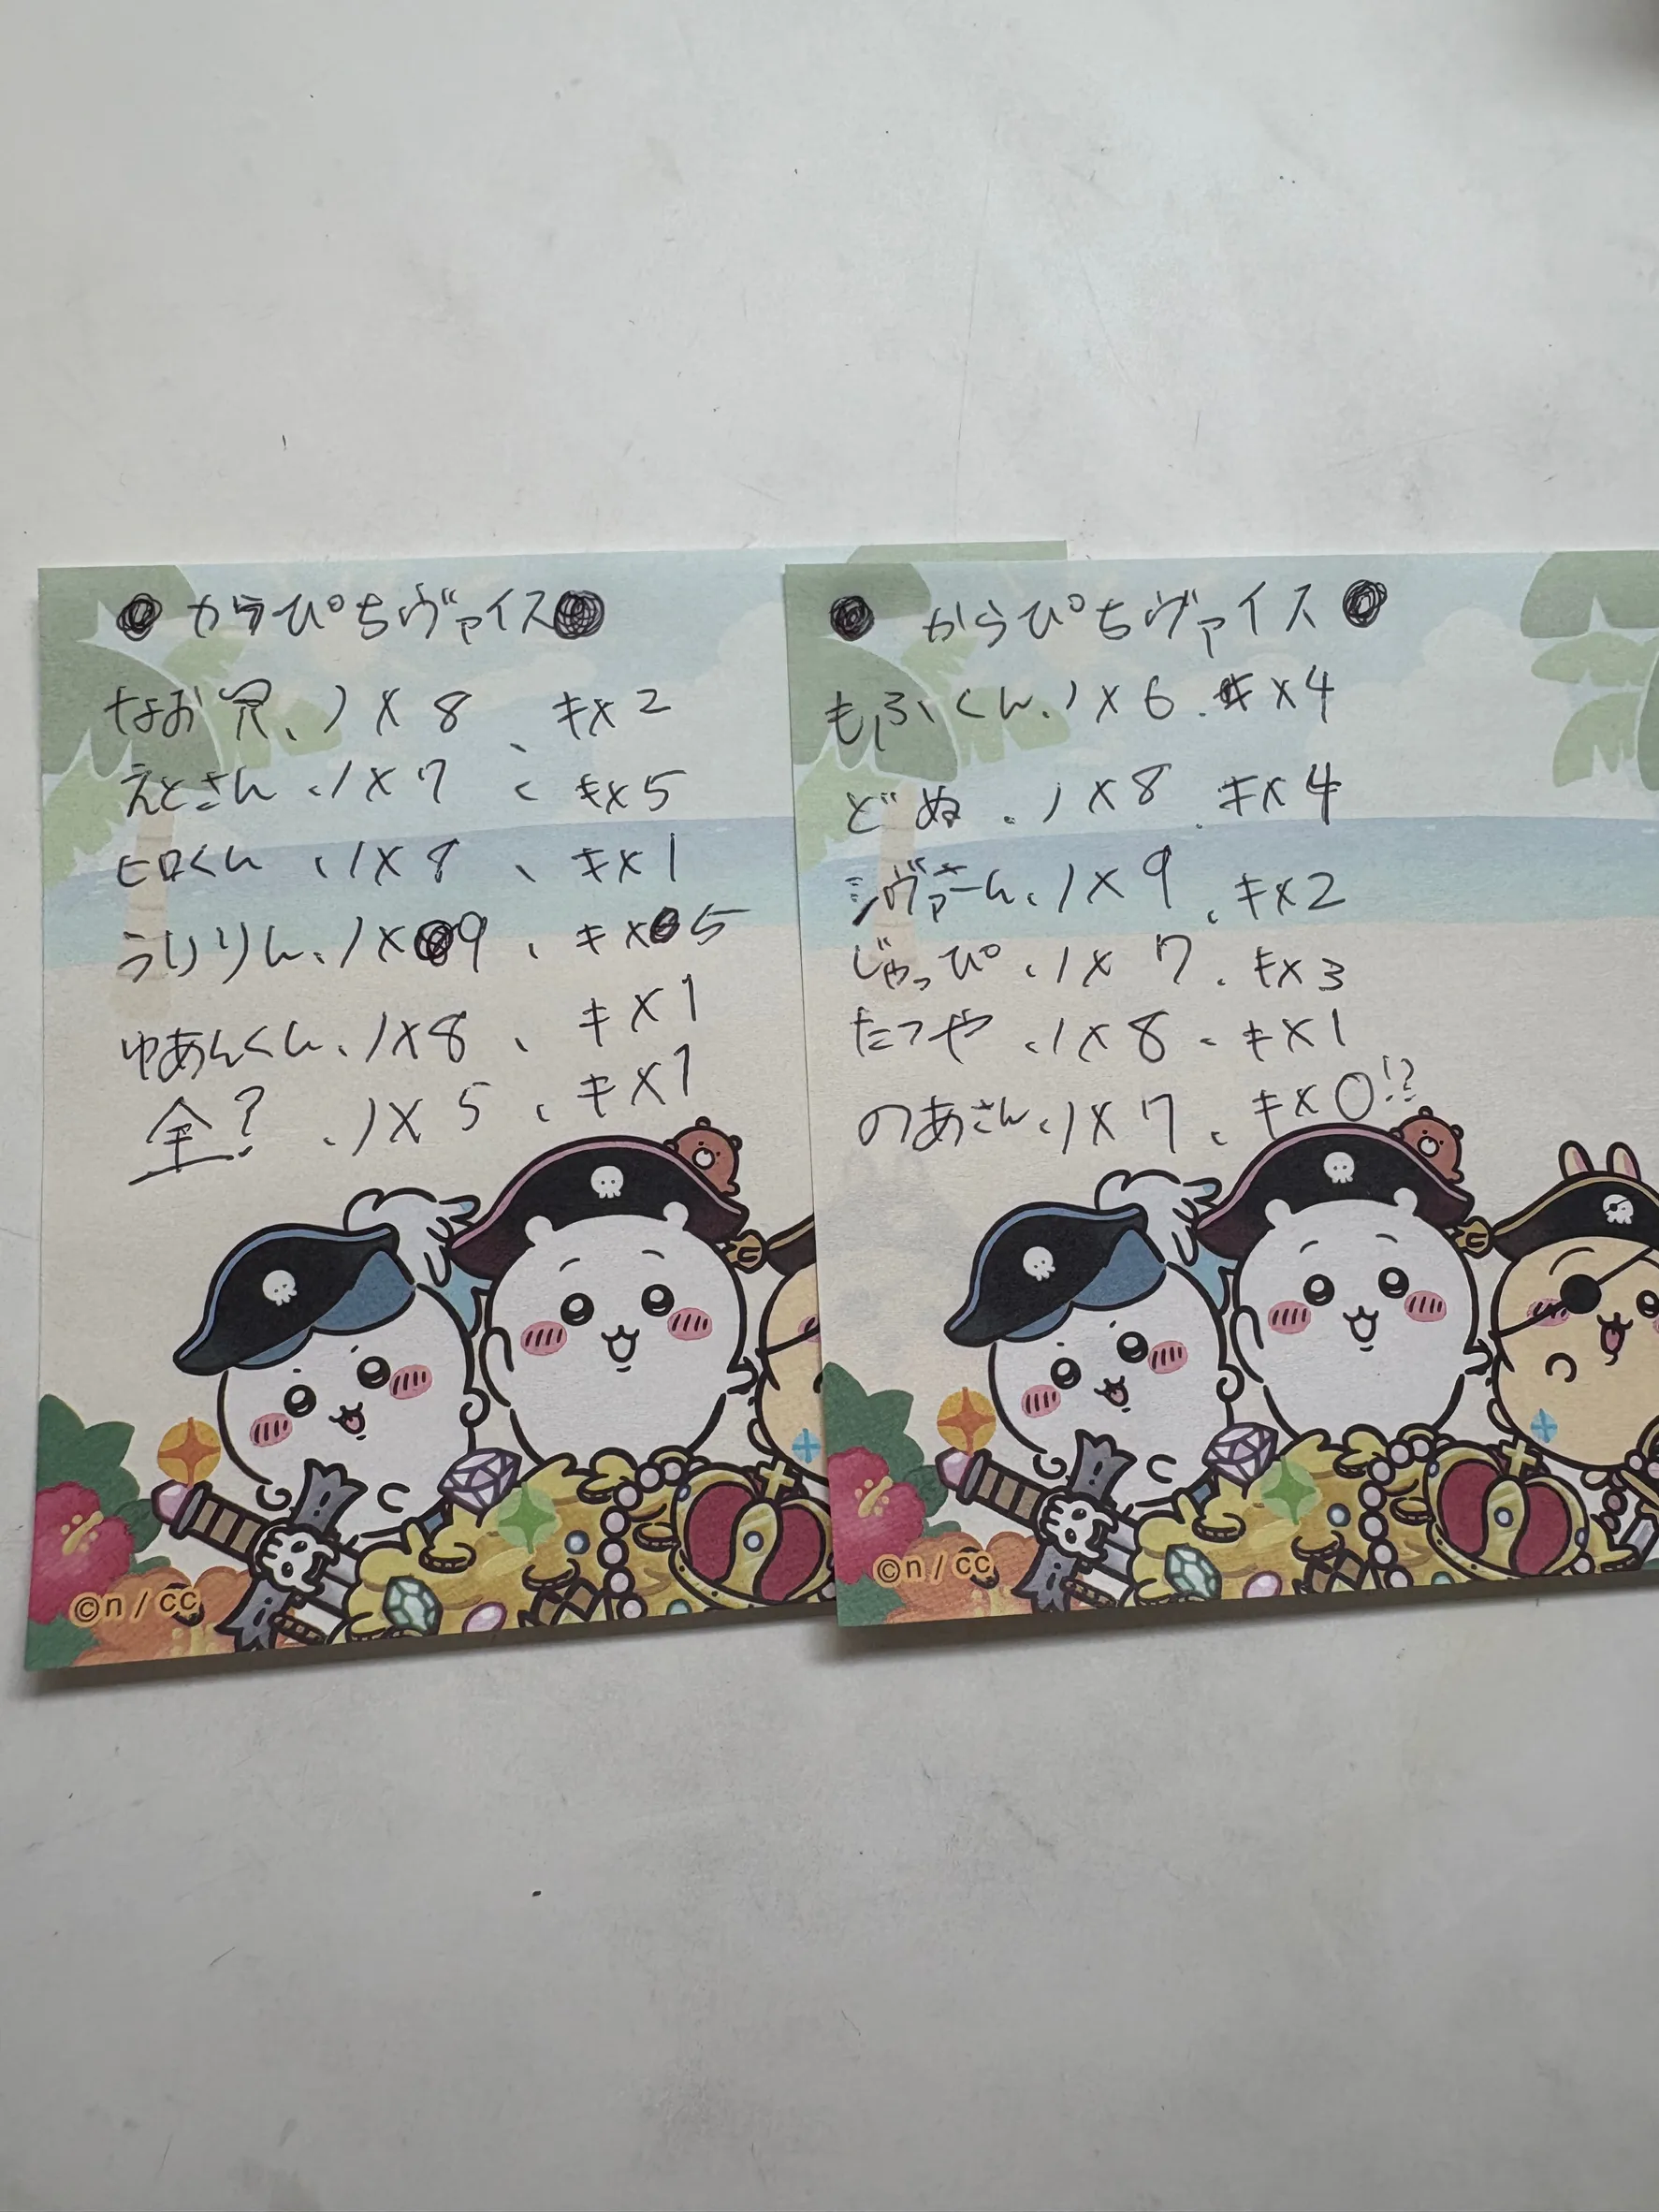 ●からぴちヴァイス●
なお兄、ノ×8、キ×2
えとさん、ノ×7、キ×5
ヒロくん、ノ×8、キ×1
うりりん、ノ×9、キ×5
ゆあんくん、ノ×8、キ×1
全?、ノ×5、キ×1
©n/cc
●からぴちヴァイス●
もふくん、ノ×6、キ×4
どぬ、ノ×8、キ×4
シヴァさーん、ノ×9、キ×2
じゃっぴ、ノ×7、キ×3
たつや、ノ×8、キ×1
のあさん、ノ×7、キ×0!?
©n/cc